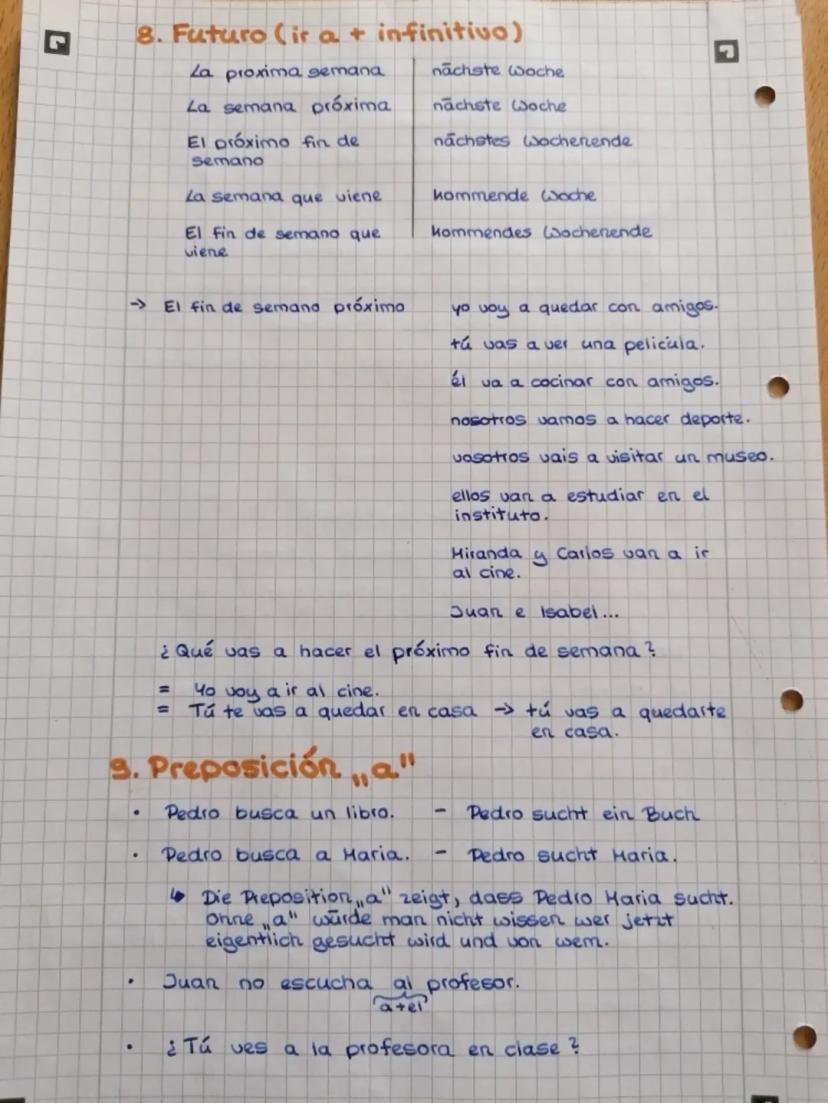 8. Futuro (ir a + infinitivo)
La proxima semana nächste Woche
La semana próxima nächste Woche
El próximo fin de nächstes Wochenende
semano
La semana que viene kommende Woche
El fin de semano que kommendes Wochenende
viene
→ El fin de semano próximo yo voy a quedar con amigos.
tú vas a ver una película.
él va a cocinar con amigos.
nosotros vamos a hacer deporte.
vosotros vais a visitar un museo.
ellos van a estudiar en el
instituto.
Miranda y Carlos van a ir
al cine.
Juan e Isabel...
¿Qué vas a hacer el próximo fin de semana?
= Yo voy a ir al cine.
= Tú te vas a quedar en casa → tú vas a quedarte
en casa.
9. Preposición „a"
• Pedro busca un libro. - Pedro sucht ein Buch
• Pedro busca a Maria. - Pedro sucht Maria.
↳ Die Preposition „a" zeigt, dass Pedro Maria sucht.
Ohne „a" würde man nicht wissen wer jetzt
eigentlich gesucht wird und von wem.
• Juan no escucha al profesor.
a+el
• ¿Tú ves a la profesora en clase?